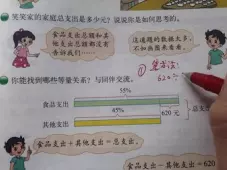 笑笑家的家庭总支出是多少元？说说你是如何思考的。
食品支出总额和其
他支出总额都没有
告诉我们……
这道题的数据太多，
不如画图来看看。
①算术法：
620÷
你能找到哪些等量关系？与同伴交流。
55%
食品支出
45%
620元
总支出
其他支出
食品支出＋其他支出＝总支出。
食品支出－其他支出＝620